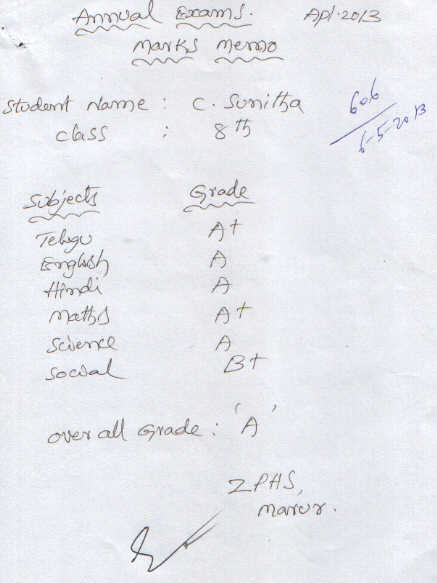 Annual Exams. Apl-2013
Marks Memo
Student Name : C. Sunitha
Class : 8th
606
6-5-2013
Subjects Grade
Telugu A+
English A
Hindi A
Maths A+
Science A
Social B+
over all Grade : 'A'
ZPHS,
Marur.